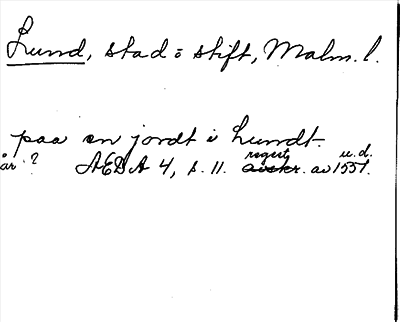 Lund, stad o stift, Malm. l.
paa en jordt i Lundt.
år ? ÆDA 4, s. 11. regest avskr. av 1551. u.d.